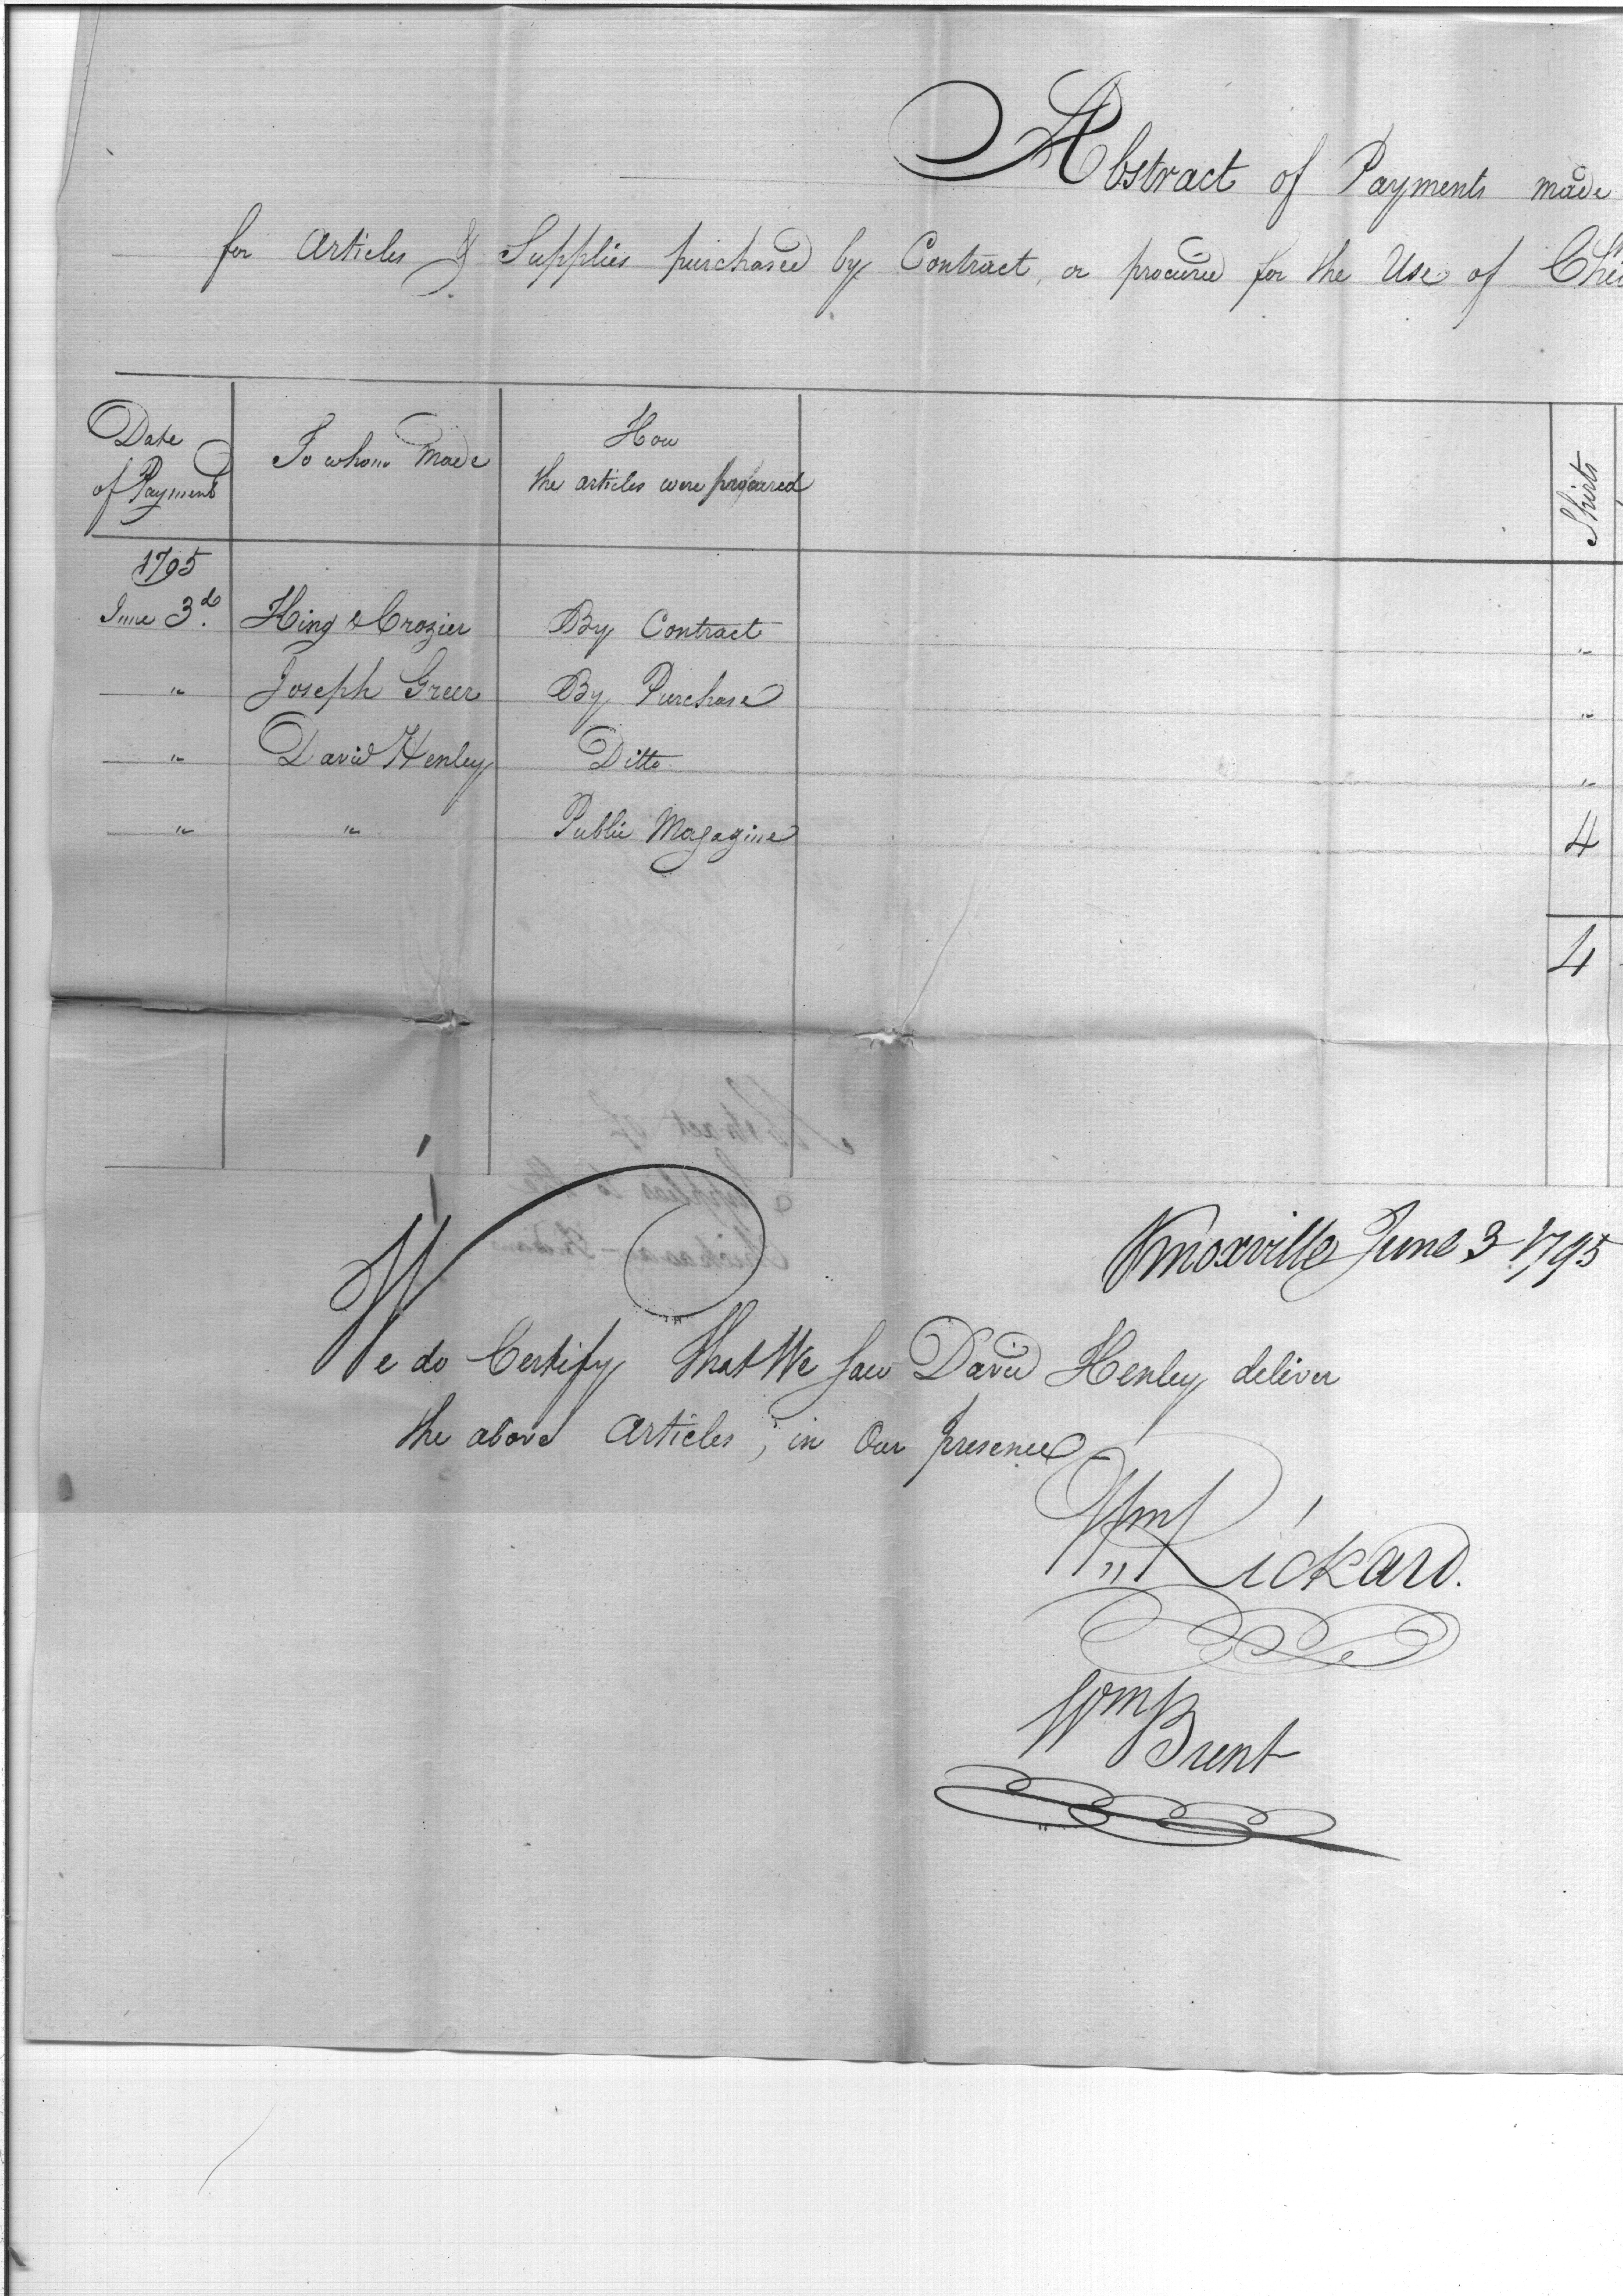 Abstract of Payments made
for Articles & Supplies purchased by Contract, or procured for the Use of Chic
Date of Payment
To whom Made
How the articles were procured
Shirts
1795
June 3d. King & Crozier By Contract "
" Joseph Greer By Purchase "
" David Henley Ditto "
" " Public Magazine 4
4
Abstract of
Supplies to the
Chickasaw Indians
Knoxville June 3 1795
We do Certify that We saw David Henley deliver
the above Articles, in Our presence
Wm Rickard.
Wm Brent